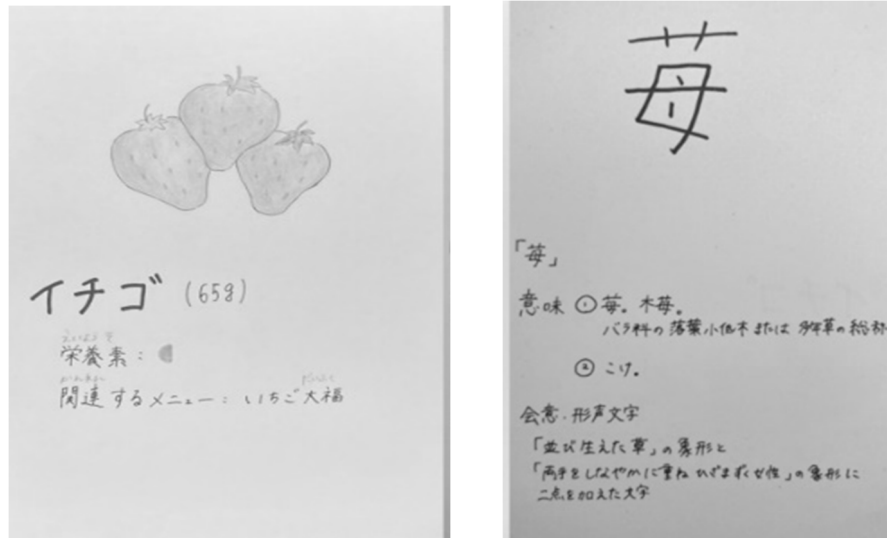 イチゴ (65g)
えいようそ
栄養素:
かんれん だいふく
関連するメニュー: いちご大福
苺
「苺」
意味 ① 苺。木苺。
バラ科の落葉小低木または多年草の総称
② こけ。
会意・形声文字
「並び生えた草」の象形と
「両手をしなやかに重ねひざまずく女性」の象形に
二点を加えた文字